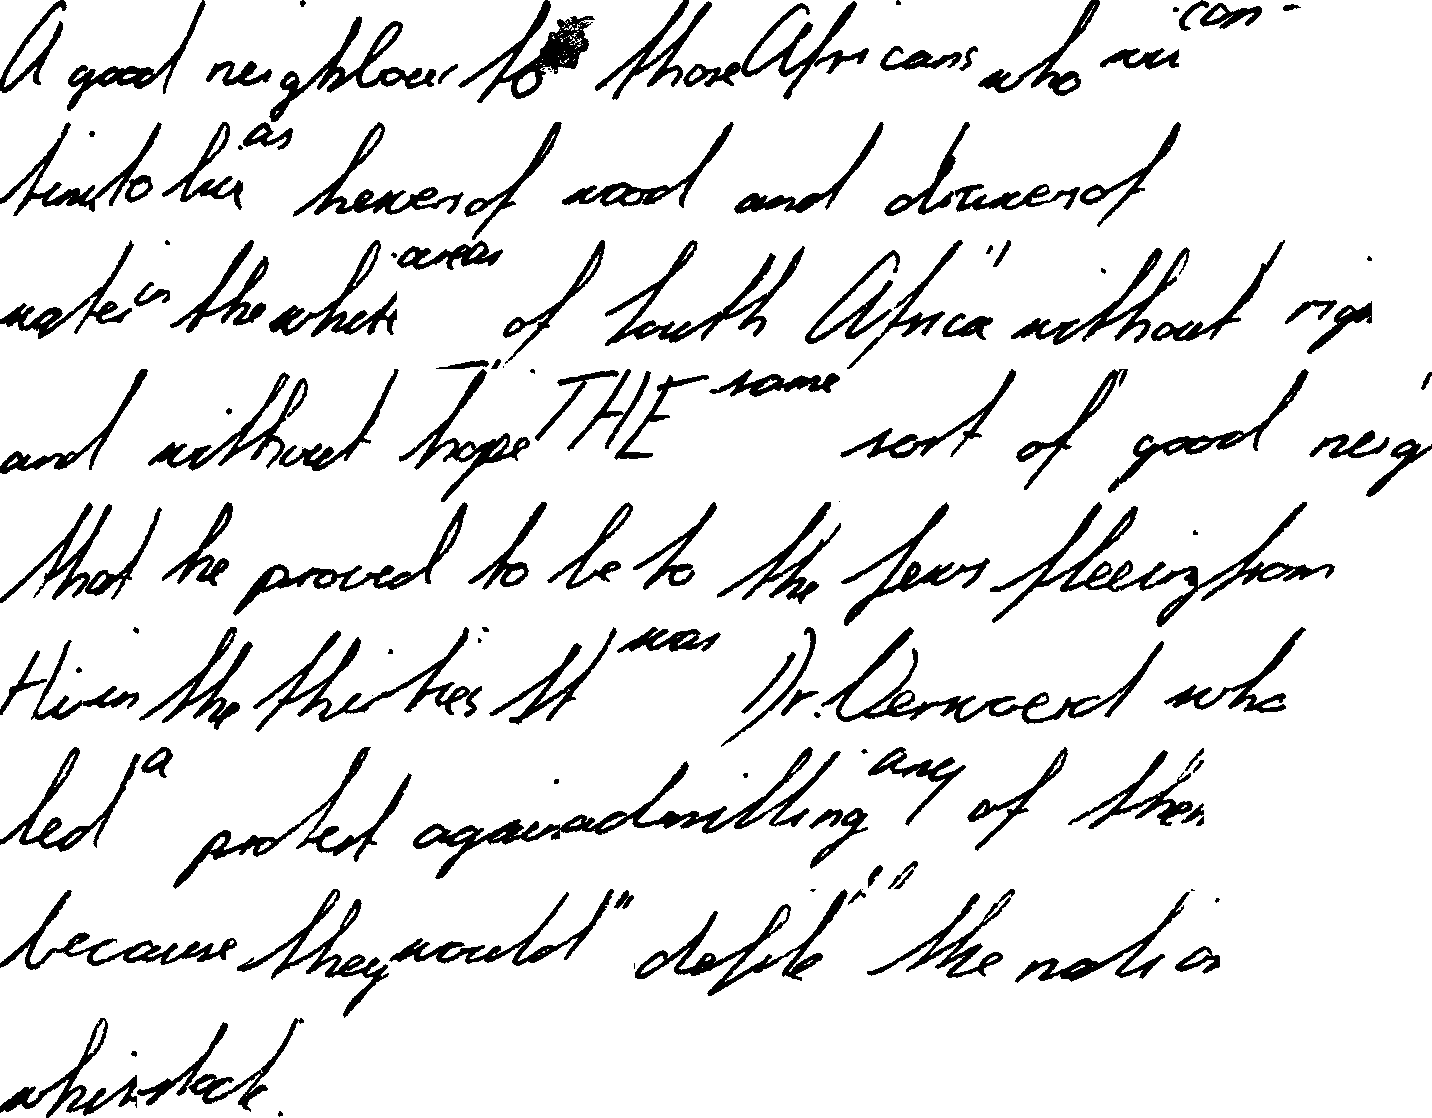 A good neighbour to those Africans who will con-
tinue to live as hewers of wood and drawers of
water in the white areas of South Africa without righ
and without hope THE same sort of good neig
that he proved to be to the Jews fleeing from
in the thirties It was Dr. Verwoerd who
led a protest against admitting any of them
because they would " defile " the nation
white stock.